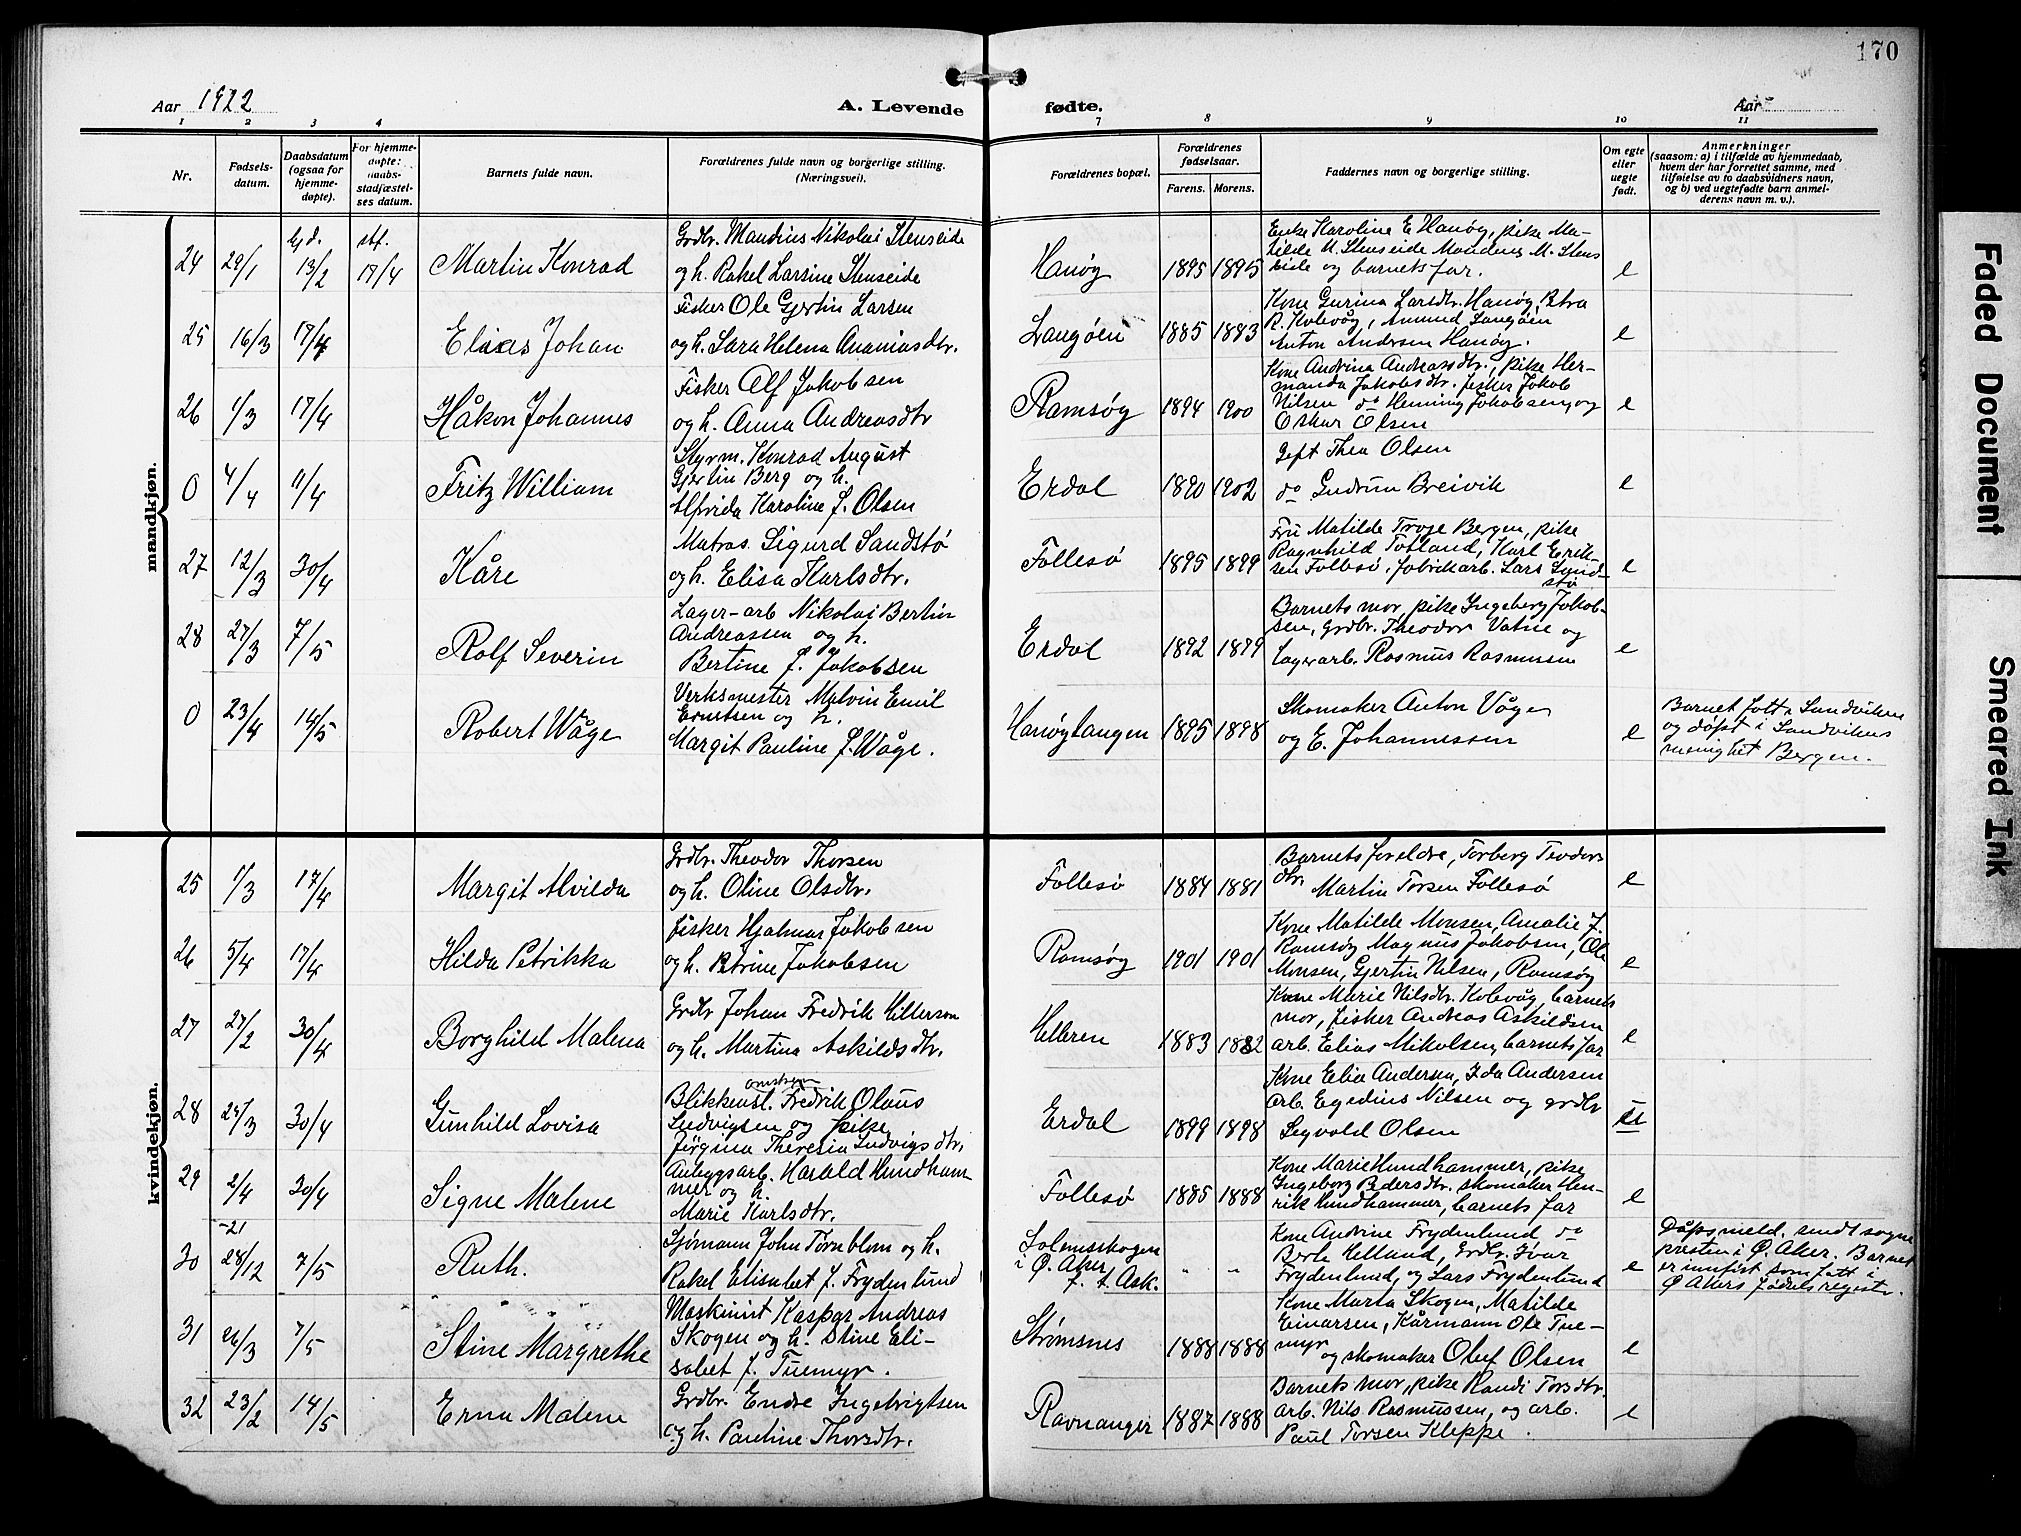 170
Aar 1922
A. Levende
fødte.
Aar
1 2 3 4
7 8 9 10 11
Nr.
Fødsels-
datum.
Daabsdatum
(ogsaa for
hjemme-
døpte).
For hjemme-
døpte:
daabs-
stadfæstel-
ses datum.
Barnets fulde navn.
Forældrenes fulde navn og borgerlige stilling.
(Næringsvei).
Forældrenes bopæl.
Forældrenes
fødselsaar.
Farens. Morens.
Faddernes navn og borgerlige stilling.
Om egte
eller
uegte
født.
Anmerkninger
(saasom: a) i tilfælde av hjemmedaab,
hvem der har forrettet samme, med
tilføielse av to daabsvidners navn,
og b) ved uegtefødte barn anmel-
derens navn m. v.).
mandkjøn.
24 29/1 hjd. 13/2 stf. 17/4 Martin Konrad
Grdbr. Mandius Nikolai Stenseide
og h. Rakel Larsine Stenseide
Hanøy 1895 1895
Enke Karoline E Hanøy, pike Ma-
tilde M. Stenseide Mandius M. Stens
eide og barnets far.
e
25 16/3 17/4 Elias Johan
Fisker Ole Gjertin Larsen
og h. Sara Helena Ananiasdtr.
Langøen 1885 1883
Kone Gurina Larsdtr. Hanøy, Petra
R. Kolevåg, Amund Langøen
Anton Andersen Hanøy.
e
26 1/3 17/4 Håkon Johannes
Fisker Alf Jakobsen
og h. Anna Andreasdtr
Ramsøy 1894 1900
Kone Andrina Andreasdtr., pike Her-
manda Jakobsdtr. fisker Jakob
Nilsen do Henning Jakobsen, og
Oskar Olsen
e
0 4/4 11/4 Fritz William
Styrm. Konrad August
Gjertin Berg og h.
Alfrida Karoline f. Olsen
Erdal 1890 1902
Gift Thea Olsen
do Gudrun Breivik
e
27 12/3 30/4 Kåre
Matros Sigurd Sandstø
og h. Elisa Karlsdtr.
Follesø 1895 1899
Fru Matilde Troje Bergen, pike
Ragnhild Totland, Karl Erik-
sen Follesø, fabrikarb. Lars Sand-
stø
e
28 27/3 7/5 Rolf Severin
Lager-arb Nikolai Bertin
Andreassen og h.
Bertine f. Jakobsen
Erdal 1892 1899
Barnets mor, pike Ingeborg Jakob-
sen, grdbr. Theodor Vatne og
Lagerarb. Rasmus Rasmussen
e
0 23/4 14/5 Robert Wåge
Verksmester Malvin Emil
Erntsen og h.
Margit Pauline f. Wåge.
Hanøytangen 1895 1898
Skomaker Anton Våge
og E. Johannessen
e
Barnet født i Sandviken
og døpt i Sandvikens
menighet Bergen.
kvindekjøn.
25 1/3 17/4 Margit Alvilda
Grdbr. Theodor Thorsen
og h. Oline Olsdtr.
Follesø 1884 1881
Barnets foreldre, Torberg Teodors
dtr. Martin Torsen Follesø
e
26 5/4 17/4 Hilda Petrikka
Fisker Hjalmar Jakobsen
og h. Petrine Jakobsen
Ramsøy 1901 1901
Kone Matilde Monsen, Amalie J.
Ramsøy Magnus Jakobsen, Ole
Monsen, Gjertin Nilsen, Ramsøy
e
27 27/2 30/4 Borghild Malena
Grdbr Johan Fredrik Hilterson
og h. Martina Askildsdtr.
Helleren 1883 1882
Kone Marie Nilsdtr. Kolevåg, barnets
mor, fisker Andreas Askildsen
arb. Elias Mikolsen, barnets far
e
28 29/3 30/4 Gunhild Lovisa
Blikkensl. Fredrik Olaus
Ludvigsen og pike
Jørgina Theresia Ludvigsdtr.
Erdal 1899 1898
Kone Elia Andersen, Ida Andersen
arb. Egedius Nilsen og grdbr
Sigvald Olsen
u
29 2/4 30/4 Signe Malene
Anlegsarb. Harald Hundham
mer og h.
Marie Karlsdtr.
Follesø 1885 1888
Kone Marie Hundhammer, pike
Ingeborg Pedersdtr. skomaker Hen-
rik Hundhammer, barnets far
e
30 -21 28/12 7/5 Ruth.
Sjømann John Tørnblom og h.
Rakel Elisabet f. Frydenlund
i Ø. Aker
f. t. Ask. " "
Kone Andrine Frydenlund do
Berte Helland, Grdbr. Ivar
Frydenlund, og Lars Frydenlund
e
Dåpsmeld. sendt sogne
presten i Ø. Aker. Barnet
er innført som født i
Ø Akers fødselsregister.
31 26/3 7/5 Stine Margrethe
Maskinist Kaspar Andreas
Skogen og h. Stine Eli-
sabet f. Tuemyr.
Strømsnes 1888 1888
Kone Marta Skogen, Matilde
Einarsen, Kårmann Ole Tue-
myr og skomaker Oluf Olsen
e
32 23/2 14/5 Erna Malene
Grdbr. Endre Ingebrigtsen
og h. Pauline Thorsdtr.
Ravnanger 1887 1888
Barnets mor, pike Randi Torsdtr.
arb. Nils Rasmussen, og arb.
Paul Torsen Kleppe.
e
Faded Document
Smeared Ink